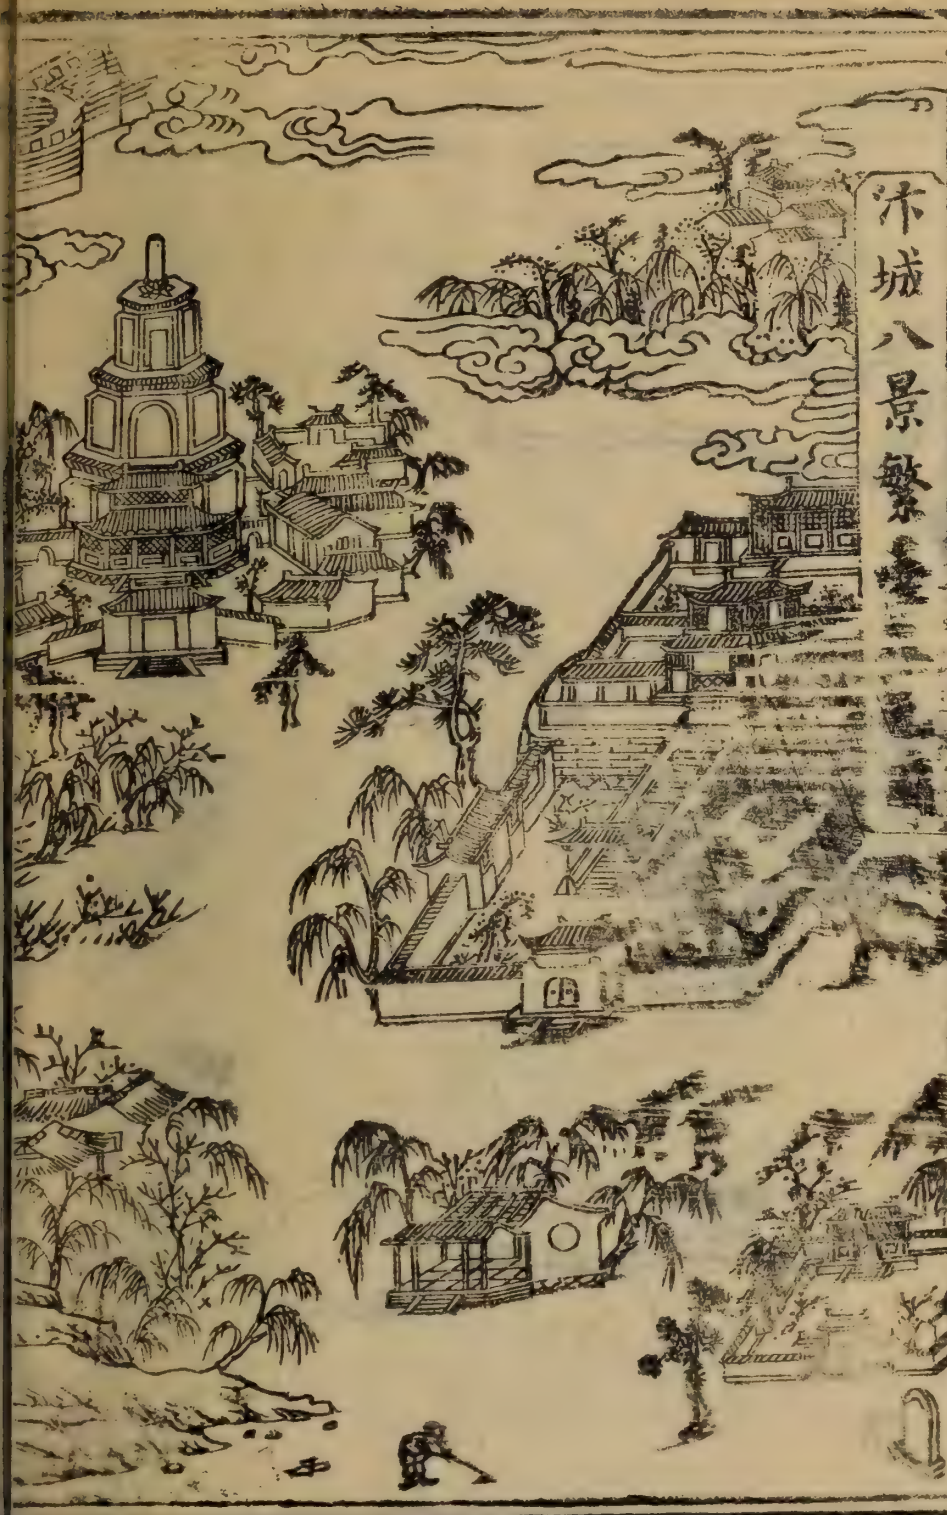 汴城八景繁臺